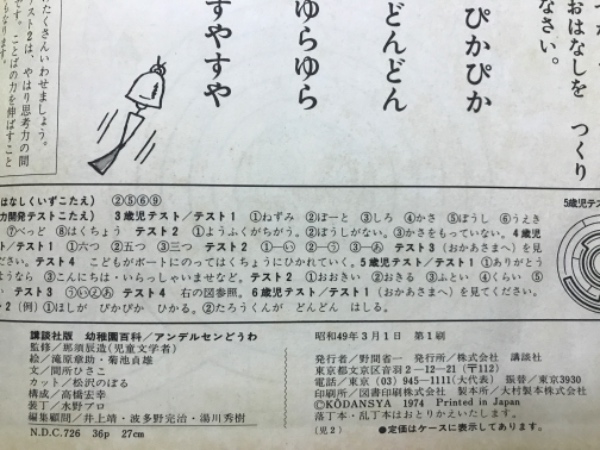 つくり
おはなしを
なさい。
ぴかぴか
どんどん
ゆらゆら
すやすや
たくさんいわせましょう。
テスト2は、やはり思考力の間
です。ことばの力を伸ばすこと
もなります。
はなしくいずこたえ） ②⑤⑥⑨
力開発テストこたえ） 3歳児テスト/テスト1 ①ねずみ ②ぼーと ③しろ ④かさ ⑤ぼうし ⑥うえき
⑦べっど ⑧はくちょう テスト2 ①ようふくがちがう。②ぼうしがない。③かさをもっていない。4歳児
ト/テスト1 ①六つ ②五つ ③三つ テスト2 ①―い ②―う ③―あ テスト3（おかあさまへ）を見
ださい。テスト4 こどもがボートにのってはくちょうにひかれていく。5歳児テスト/テスト1 ①ありがとう
ようなら ③こんにちは・いらっしゃいませなど。テスト2 ①おおきい ②おきる ③ふとい ④くらい ⑤
い テスト3 ⓤⓘⓔⓐ テスト4 右の図参照。6歳児テスト/テスト1（おかあさまへ）を見てください。
ト2（例）①ほしが ぴかぴか ひかる。②たろうくんが どんどん はしる。
5歳児テス
講談社版 幼稚園百科/アンデルセンどうわ
監修/那須辰造(児童文学者)
絵/滝原章助・菊池貞雄
文/間所ひさこ
カット/松沢のぼる
構成/高橋宏幸
装丁/水野プロ
編集顧問/井上靖・波多野完治・湯川秀樹
N.D.C.726 36p 27cm
昭和49年3月1日 第1刷
発行者/野間省一 発行所/株式会社 講談社
東京都文京区音羽2—12—21(〒112)
電話/東京(03)945—1111(大代表) 振替/東京3930
印刷所/図書印刷株式会社 製本所/大村製本株式会社
©KŌDANSYA 1974 Printed in Japan
落丁本・乱丁本はおとりかえいたします。
(児2) ●定価はケースに表示してあります。